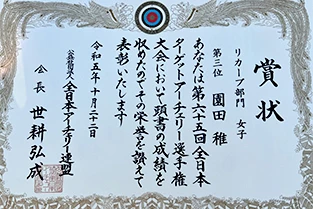 賞状
リカーブ部門 女子
第三位 園田 稚
あなたは第六十五回全日本
ターゲットアーチェリー選手権
大会において頭書の成績を
収めたのでその栄誉を讃えて
表彰いたします
令和五年十月二十二日
公益社団法人 全日本アーチェリー連盟
会長 世耕弘成